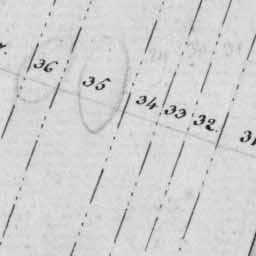 36 35 34 33 32